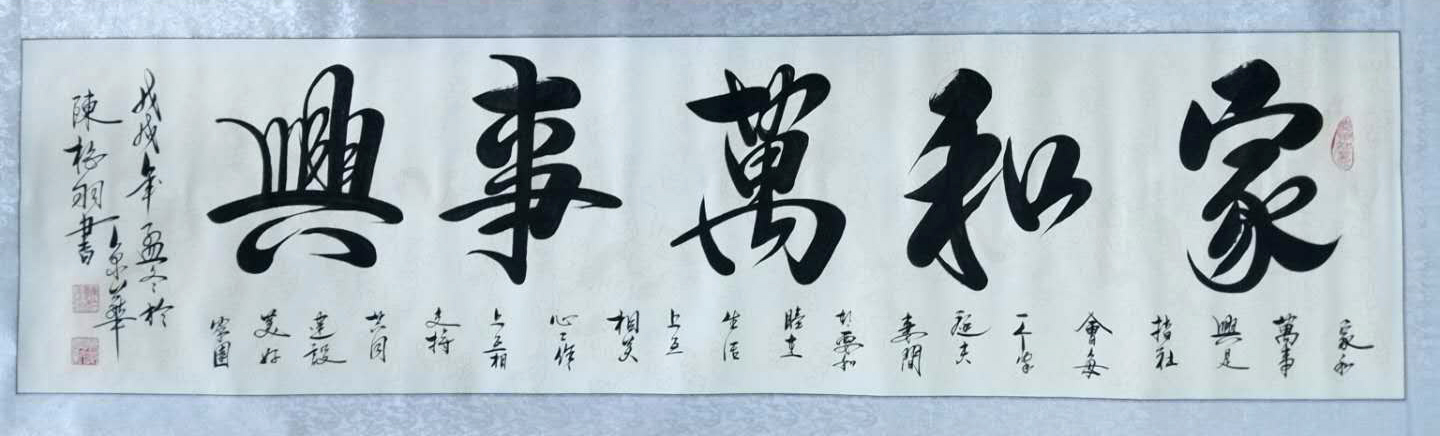 家和萬事興
家和
萬事
興是
指社
會每
个家
庭夫
妻間
都要和
睦在
生活
上互
相关
心工作
上互相
支持
共同
建設
美好
家園
戊戌年孟冬於
京華
陳羽書